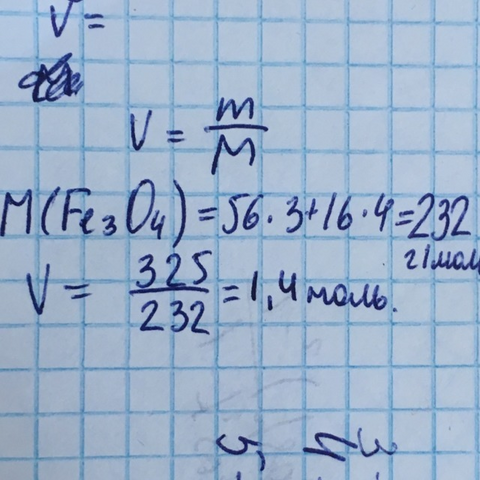 V =
V = m/M
M(Fe₃O₄) = 56·3+16·4=232 г/моль
V = 325/232 = 1,4 моль.